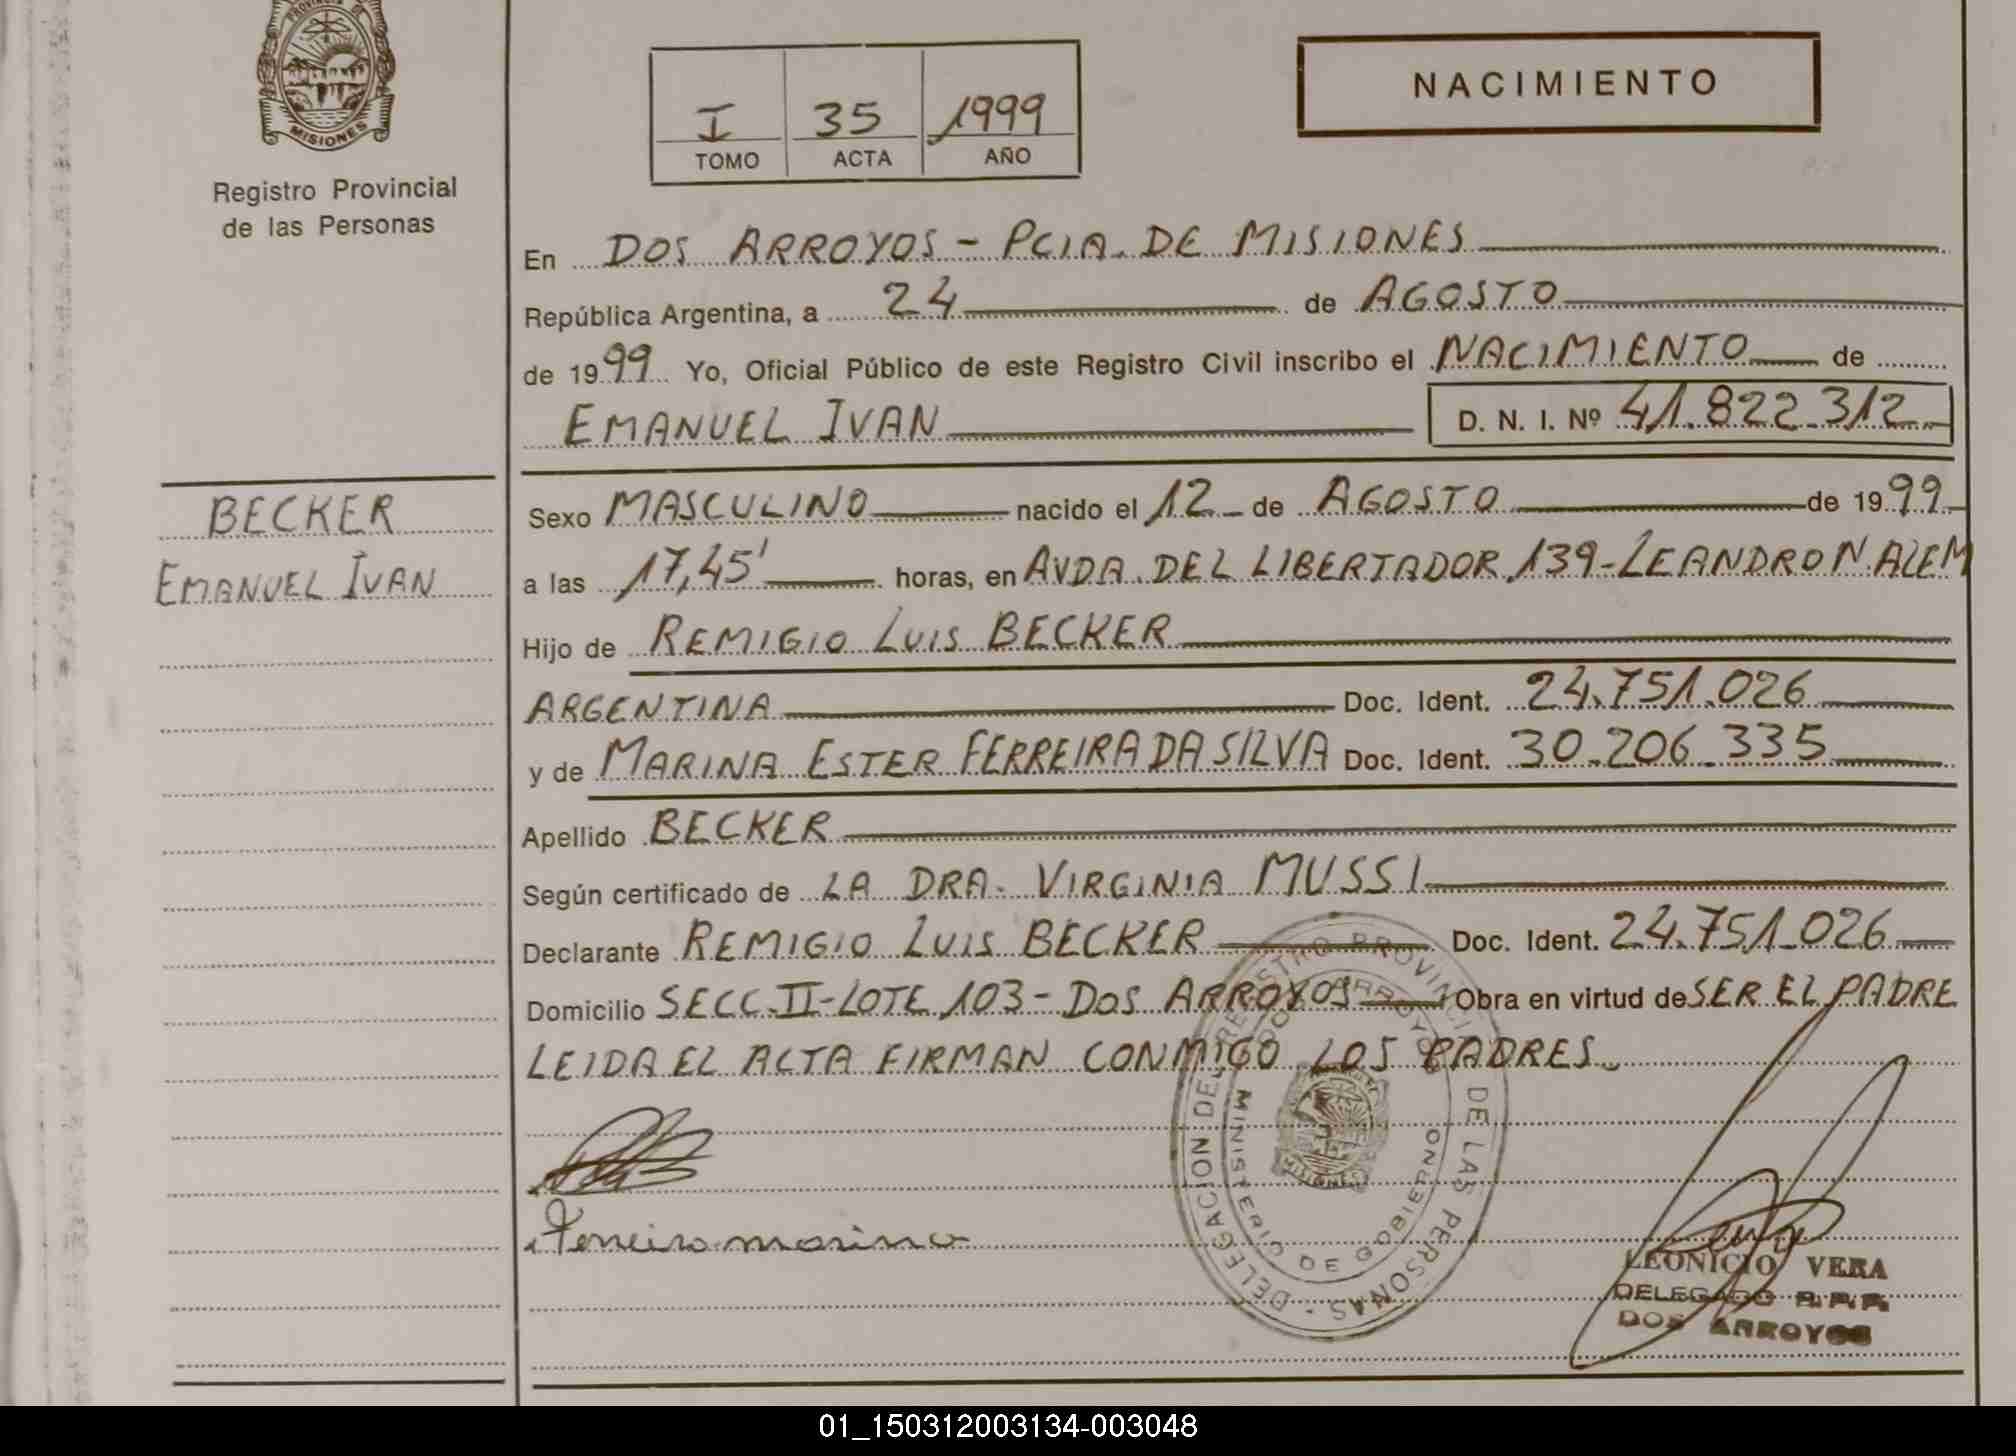 PROVINCIA DE
MISIONES
Registro Provincial
de las Personas
I 35 1999
TOMO ACTA AÑO
NACIMIENTO
En DOS ARROYOS - PCIA. DE MISIONES
República Argentina, a 24 de AGOSTO
de 1999 Yo, Oficial Público de este Registro Civil inscribo el NACIMIENTO de
EMANUEL IVAN D. N. I. Nº 41.822.312
BECKER
EMANUEL IVAN
Sexo MASCULINO nacido el 12 de AGOSTO de 1999
a las 17,45' horas, en AVDA. DEL LIBERTADOR 139-LEANDRO N. ALEM
Hijo de REMIGIO LUIS BECKER
ARGENTINA Doc. Ident. 24.751.026
y de MARINA ESTER FERREIRA DA SILVA Doc. Ident. 30.206.335
Apellido BECKER
Según certificado de LA DRA. VIRGINIA MUSSI
Declarante REMIGIO LUIS BECKER Doc. Ident. 24.751.026
Domicilio SECC. II-LOTE 103-DOS ARROYOS Obra en virtud de SER EL PADRE
LEIDA EL ACTA FIRMAN CONMIGO LOS PADRES.
DELEGACION DEL REGISTRO PROVINCIAL DE LAS PERSONAS
DOS ARROYOS
MINISTERIO DE GOBIERNO
MISIONES
Ferreira marina
LEONICIO VERA
DELEGADO R.P.P.
DOS ARROYOS
01_150312003134-003048